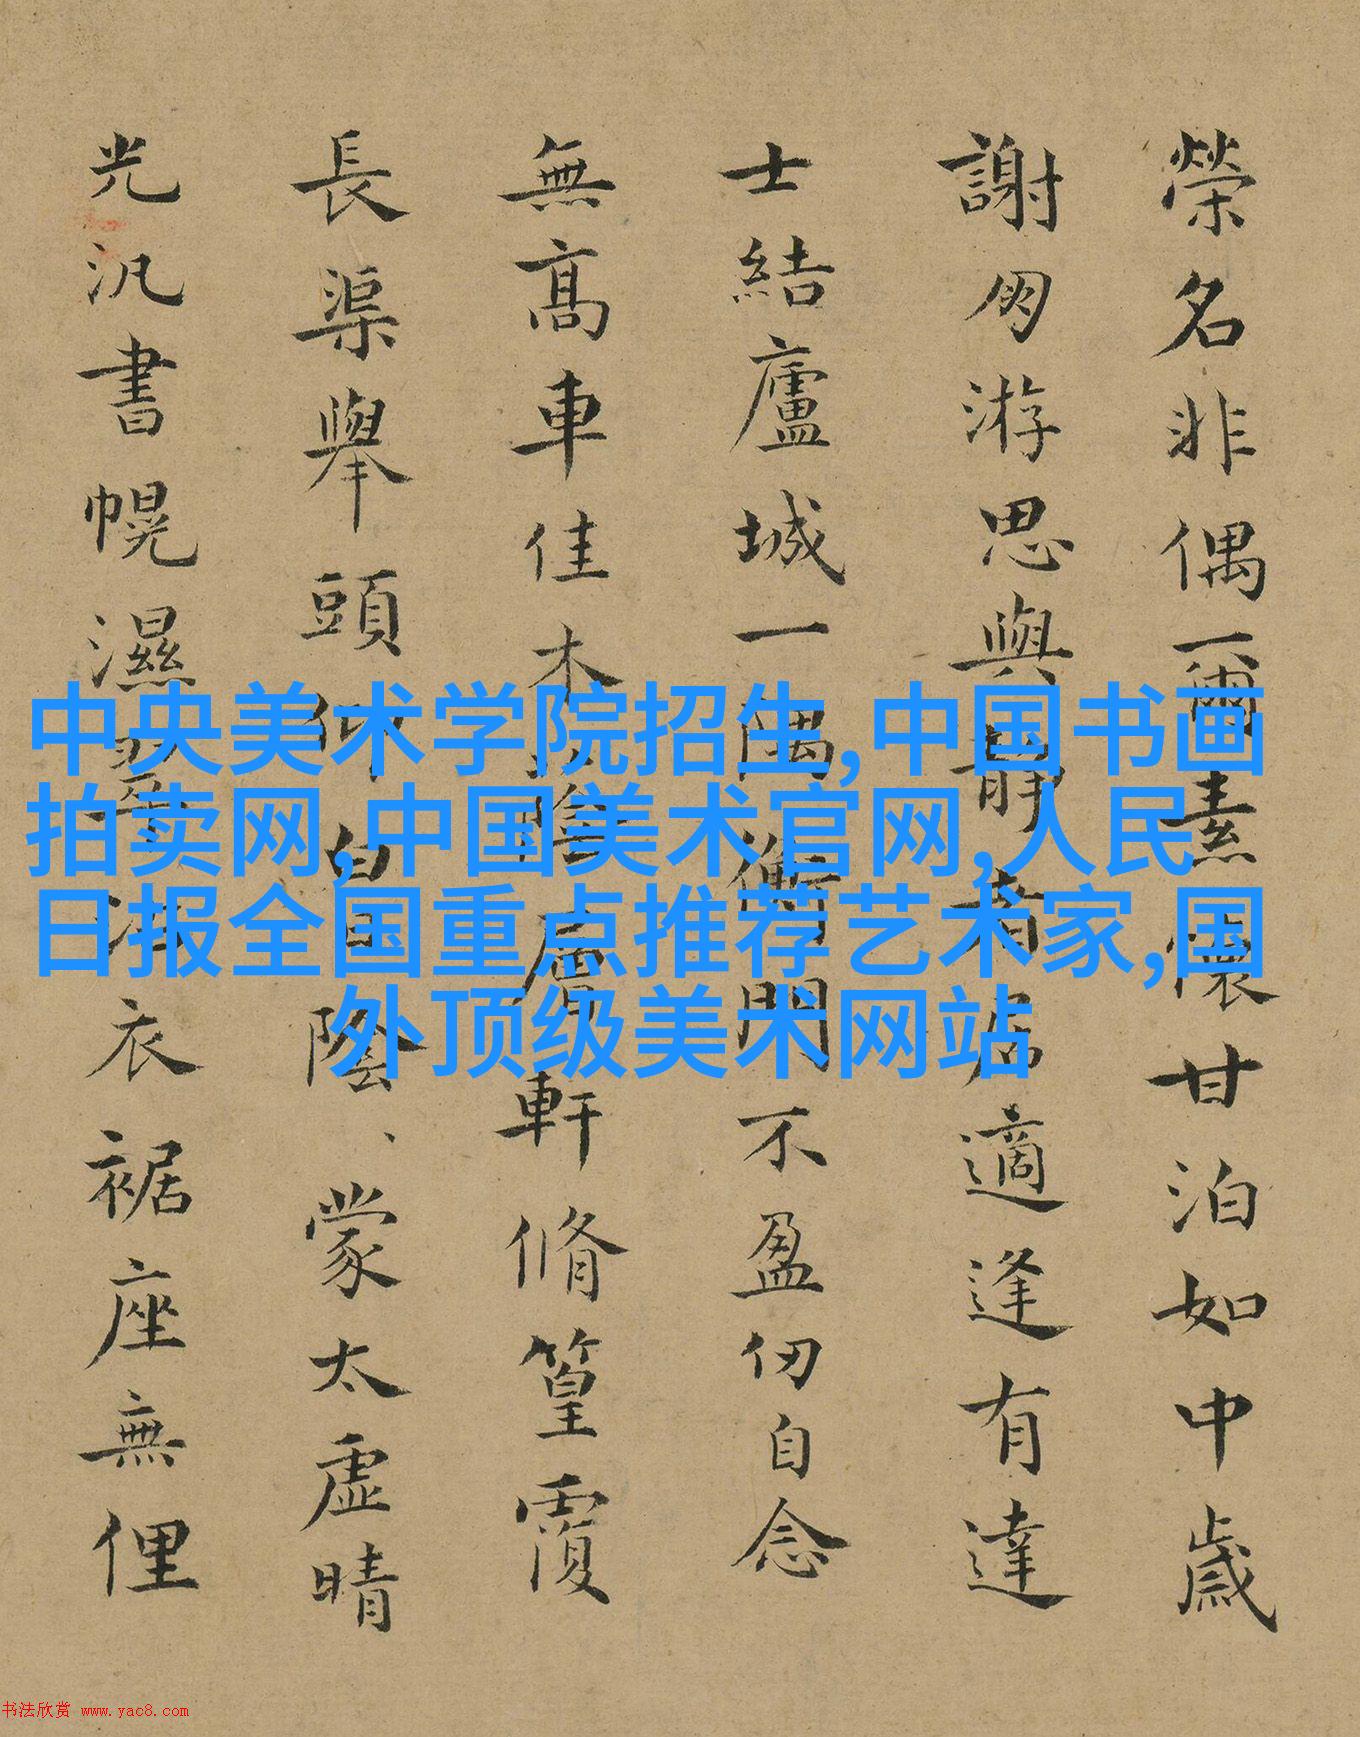 榮名非偶爾素懷甘泊如中歲
謝朋游思與靜者居適逢有達
士結廬城一隅衡門不盈仞自念
無髙車佳木陰層軒脩篁覆
長渠舉頭仰陰、蒙太虛晴
光汎書幌濕翠沾衣裾座無俚
中央美术学院招生,中国书画
拍卖网,中国美术官网,人民
日报全国重点推荐艺术家,国
外顶级美术网站
书法欣赏 www.yac8.com